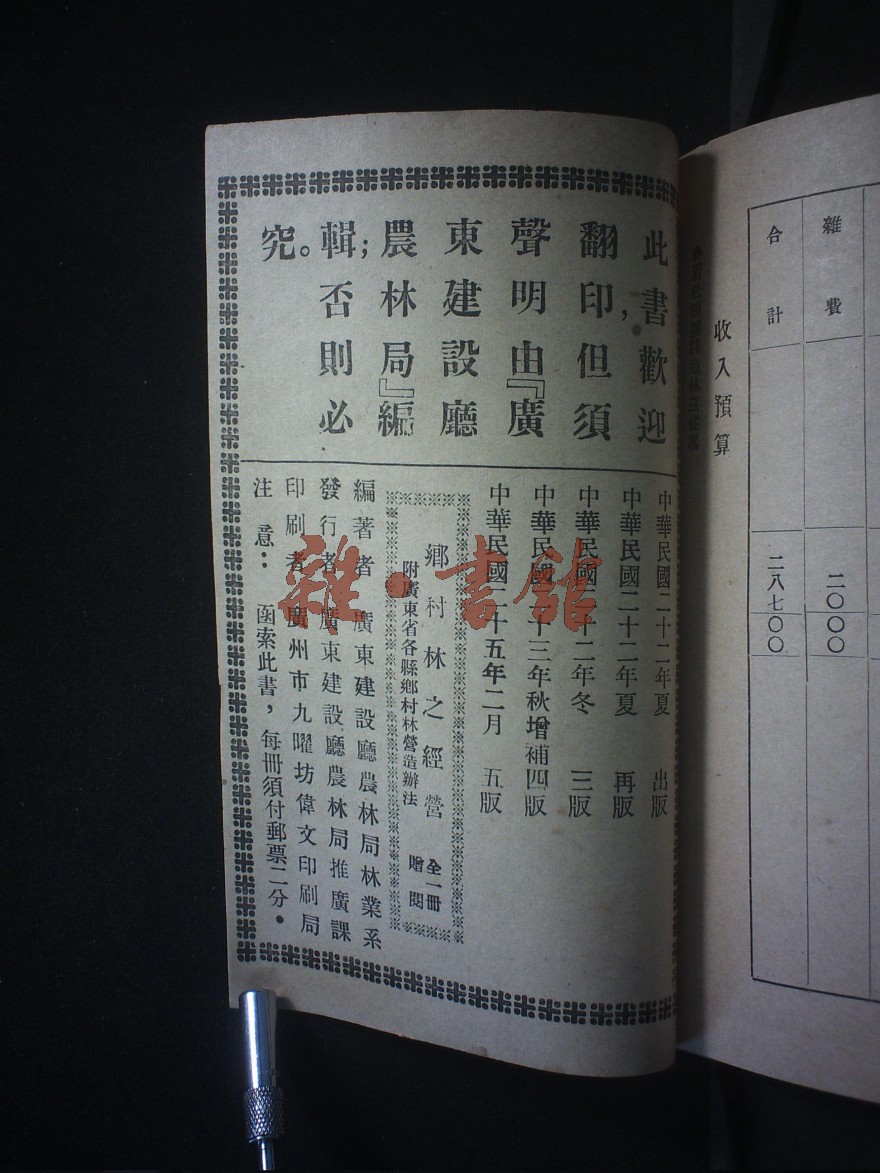 雜費 二〇〇〇
合計 二八七〇〇
收入預算
此書歡迎
翻印，但須
聲明由『廣
東建設廳
農林局』編
輯；否則必
究。
中華民國二十二年夏 出版
中華民國二十二年夏 再版
中華民國二十二年冬 三版
中華民國二十三年秋增補四版
中華民國二十五年二月 五版
鄉村林之經營 全一冊
附廣東省各縣鄉村林營造辦法 贈閱
編著者 廣東建設廳農林局林業系
發行者 廣東建設廳農林局推廣課
印刷者 廣州市九曜坊偉文印刷局
注意： 函索此書，每冊須付郵票二分。
雜·書館